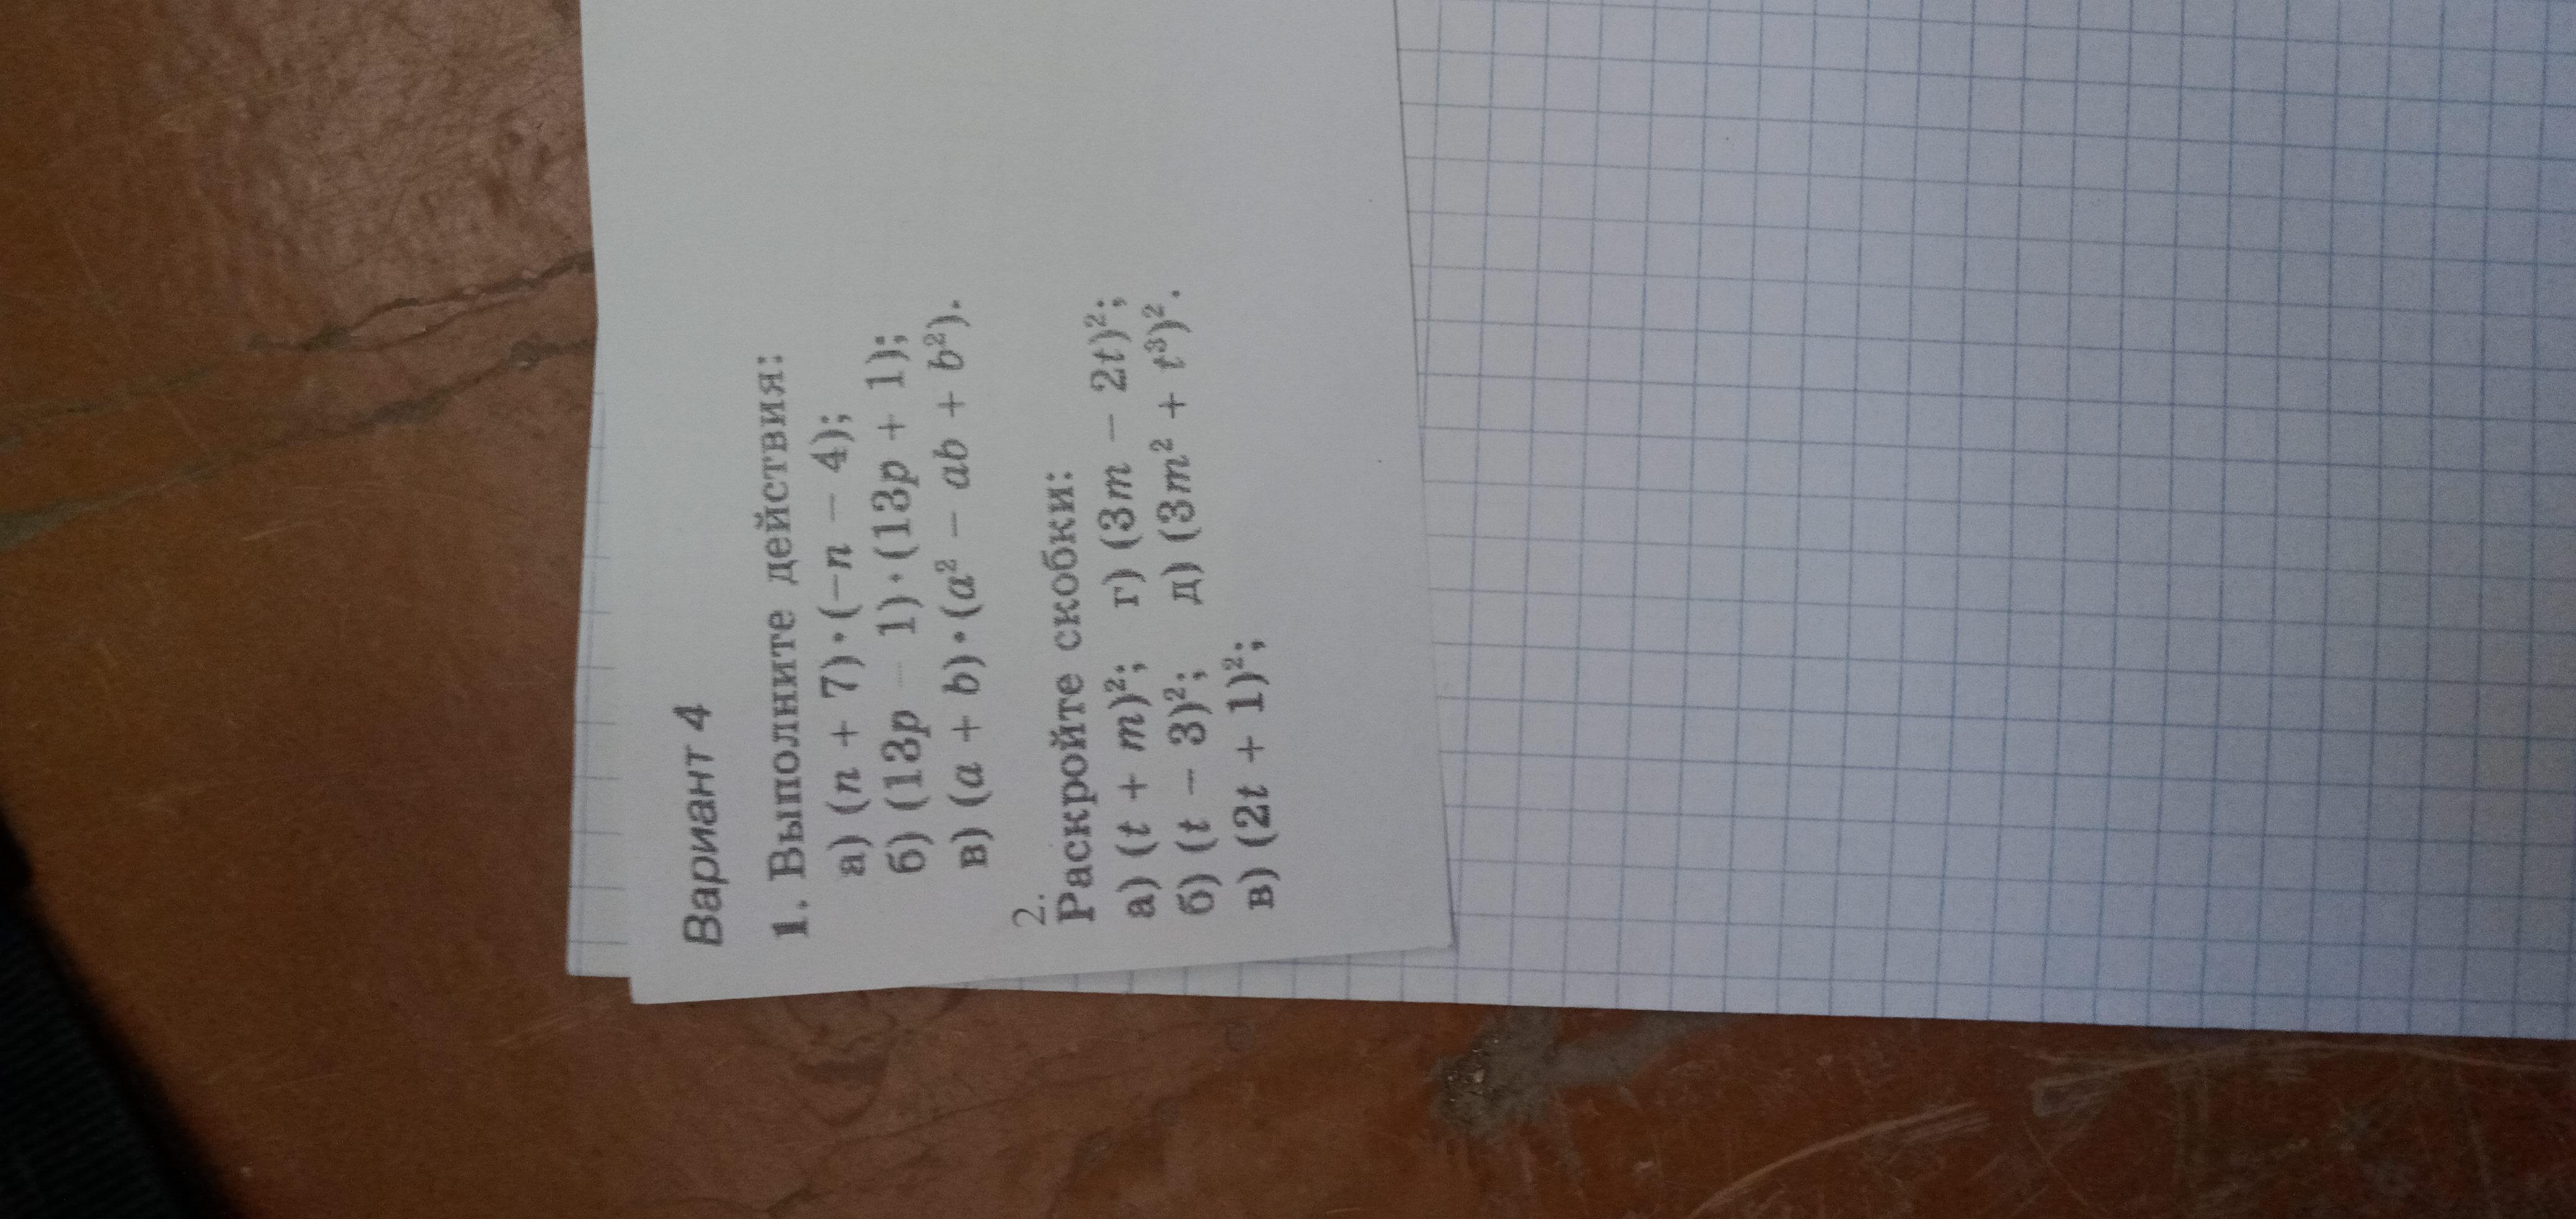 Вариант 4
1. Выполните действия:
а) (n + 7)·(−n − 4);
б) (13p − 1)·(13p + 1);
в) (a + b)·(a² − ab + b²).
2.
Раскройте скобки:
а) (t + m)²; г) (3m − 2t)²;
б) (t − 3)²; д) (3m² + t³)².
в) (2t + 1)²;